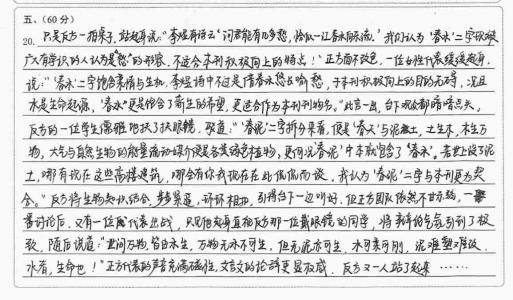 五、(60分)
20. 只见反方一拍桌子,站起身说:"李煜有诗云'问君能有几多愁,恰似一江春水向东流。'我们认为'春水'二字很被
广大有学识的人认为是"愁"的形容,不适合本刊积极向上的特点!"正方面不改色,一位女性代表缓缓起身,
说:"'春水'二字饱含柔情与生机,李煜诗中不过是借春水愁以喻愁,于本刊积极向上的目的无碍,况且
水是生命起源,'春水'更是饱含了新生的希望,更适合作为本刊刊物名。"此言一出,台下观众都暗暗点头,
反方的一位学生儒雅地扶了扶眼镜,驳道:"'春泥'二字拆分来看,便是'春天'与泥土,土生木,木生万
物,大气与自然生物的能量流动媒介便是各类绿色植物,更何况'春泥'中本就包含了'春水'。若世上没了泥
土,哪有现在这些高楼建筑,哪会有你我现在在此侃侃而谈,我认为'春泥'二字与本刊更为契
合。"反方将生物知识结合,步步渠道,环环相扣,引得台下一边叫好,但正方团队依然不甘示弱,一番
審讨论后,又有一位代表出战,只见他起身直视反方那一位戴眼镜的同学,将辩论的气氛引到了极
致,随后说道:"世间万物,皆由水生,万物无水不可生,但无泥水可生,水可柔可刚,泥难塑难改,
水者,生命也!"正方代表的声音充满磁性,文言文的论辞更显权威,反方又一人站了起来……